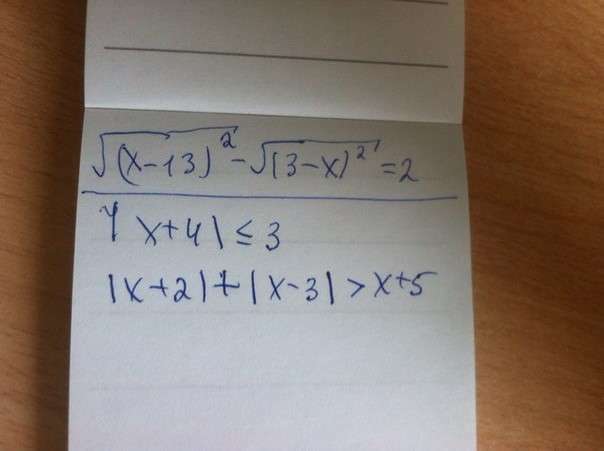 √(x-13)² - √(3-x)² = 2
|x+4| ≤ 3
|x+2|+|x-3| > x+5